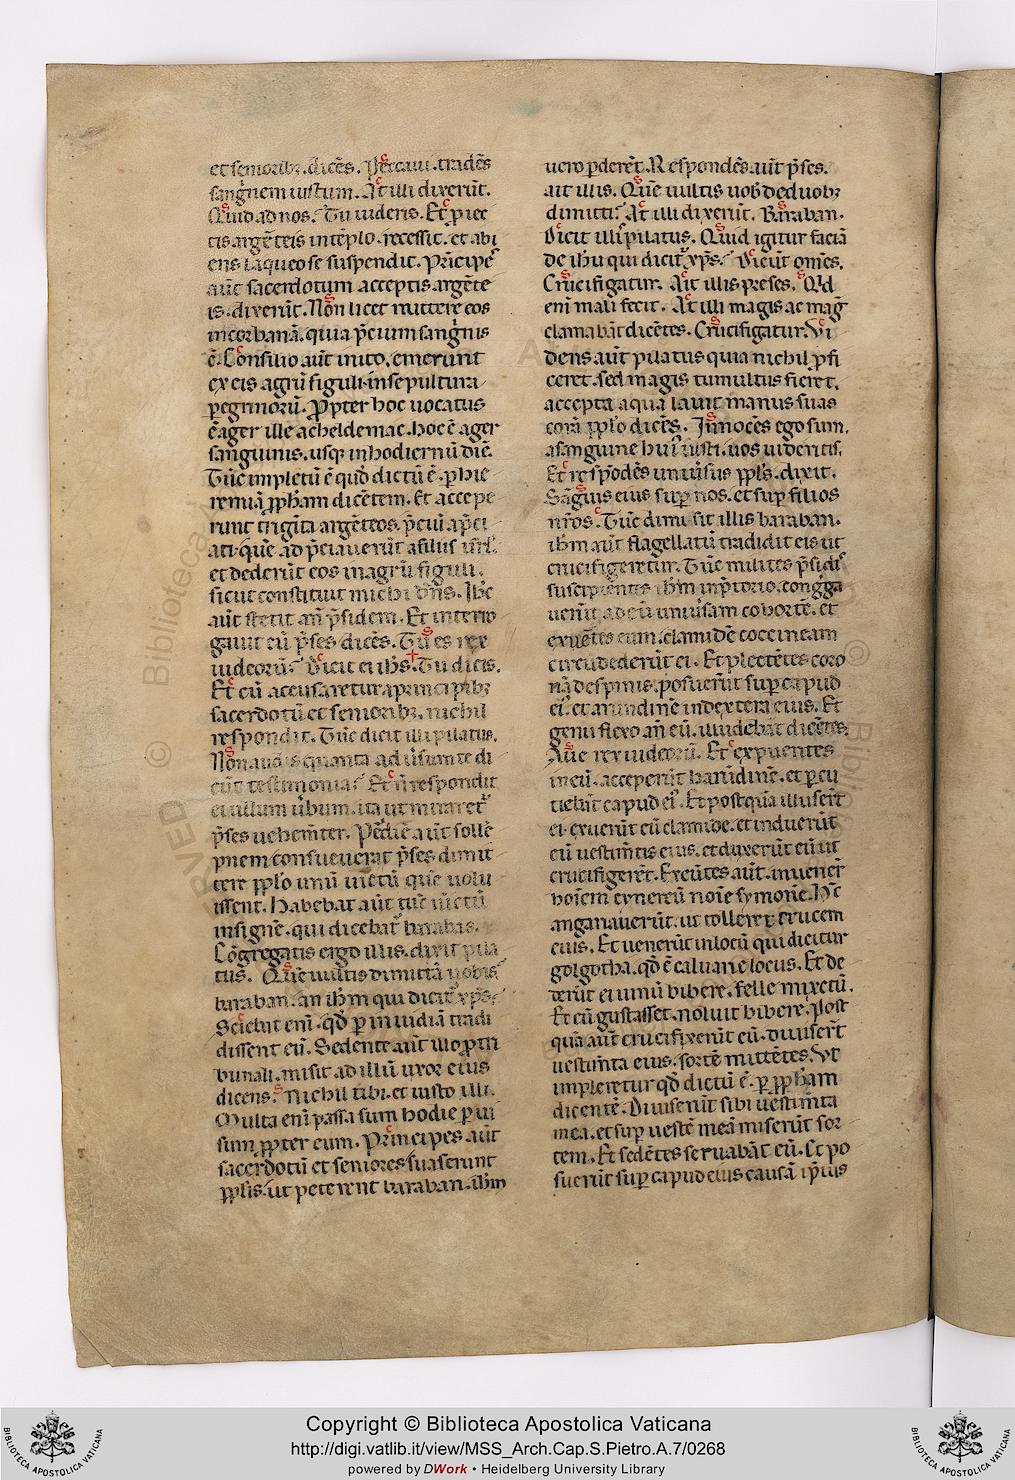 et seniorib; dicēs. Peccaui. tradēs
sangˈnem iustum. At illi dixerūt.
Quid ad nos? Tu uideris. Et ꝓiec
tis argēteis in tēplo. recessit. et abi
ens laqueo se suspendit. Prīcipes
aūt sacerdotum acceptis argēte
is. dixerūt. Non licet mittere eos
in corbanā. quia p̄cium sangˈnis
ē. Consilio aūt inito. emerunt
ex eis agrū figuli. in sepultura
ꝑegrinorū. Propter hoc uocatus
ē ager ille acheldemac. hoc ē ager
sanguinis. usqꝫ in hodiernū diē.
Tūc impletū ē quod dictū ē. ꝑ hie
remiā ꝓph̄am dicētem. Et accepe
runt triginta argēteos. p̄ciū ap̄ci
ati. quē ad p̄ciauerūt a filiis isrl̄.
et dederūt eos in agrū figuli.
sicut constituit michi dn̄s. Ihc̄
aūt stetit an̄ p̄sidem. Et interro
gauit eū p̄ses dicēs. Tu es rex
iudeorū? Dicit ei ihs̄. Tu dicis.
Et cū accusaretur a principib;
sacerdotū et seniorib;. nichil
respondit. Tūc dicit illi pilatus.
Non audis quanta aduˈsum te di
cūt testimonia? Et n̄ respondit
ei ullum uˈbum. ita ut miraretˈ
p̄ses uehem̄ter. Per diē aūt solle
pnem consueuerat p̄ses dimit
tere ꝓplo unū uīctū quē uolu
issent. Habebat aūt tūc uīctū
insignē. qui dicebatˈ barabas.
Cōgregatis ergo illis. dixit pila
tus. Quē uultis dimittā uobis
baraban. an ihm̄ qui dicitˈ xp̄s?
Sciebat enī. qd̄ ꝑ inuidiā tradi
dissent eū. Sedente aūt illo ꝓ tri
bunali. misit ad illū uxor eius
dicens. Nichil tibi. et iusto illi.
Multa enī passa sum hodie ꝑ ui
sum ꝓpter eum. Principes aūt
sacerdotū et seniores suaserunt
ꝓplis. ut peterent baraban. ihm̄
uero ꝑderēt. Respondēs aūt p̄ses.
ait illis. Quē uultis uob̄ de duob;
dimitti? At illi dixerūt. Baraban.
Dicit illis pilatus. Quid igitur faciā
de ihu qui dicitˈ xp̄s? Dicūt omēs.
Crucifigatur. Ait illis preses. Qˈd
enī mali fecit. At illi magis ac magˈ
clamabāt dicētes. Crucifigatur. Vi
dens aūt pilatus quia nichil ꝓfi
ceret. sed magis tumultus fieret.
accepta aqua lauit manus suas
corā ꝓplo dicēs. Innocēs ego sum.
a sanguine huiˈ iusti. uos uideritis.
Et respōdēs uniuˈsus ꝓpls̄. dixit.
Sanguis eius suꝑ nos. et suꝑ filios
nr̄os. Tūc dimisit illis baraban.
ihm̄ aūt flagellatū tradidit eis ut
crucifigeretur. Tūc milites p̄sidis
suscipientes ihm̄ in p̄torio. congˈga
uerūt ad eū uniuˈsam cohortē. et
exuētes eum. clamidē coccineam
circūdederūt ei. Et plectētes coro
nā de spinis. posuerūt suꝑ capud
eiˈ. et arundinē in dextera eius. Et
genu flexo an̄ eū. illudebāt dicētes.
Aue rex iudeorū. Et expuentes
in eū. acceperūt harūdinē. et ꝑcu
tiebāt capud eiˈ. Et postquā illuserūt
ei. exuerūt eū clamide. et induerūt
eū uestim̄tis eius. et duxerūt eū ut
crucifigerēt. Exeūtes aūt. inuenerˈ
hoīem cyreneū noīe symonē. Hūc
anganauerūt. ut tolleret crucem
eius. Et uenerūt in locū qui dicitur
golgotha. qd̄ ē caluarie locus. Et de
derūt ei uinū bibere. felle mixtū.
Et cū gustasset. noluit bibere. Post
quā aūt crucifixerūt eū. diuiserūt
uestim̄ta eius. sortē mittētes. Vt
impleretur qd̄ dictū ē. ꝑ ꝓph̄am
dicentē. Diuiserūt sibi uestim̄ta
mea. et suꝑ uestē meā miserūt sor
tem. Et sedētes seruabāt eū. Et po
suerūt suꝑ capud eius causā ipˈius
Copyright © Biblioteca Apostolica Vaticana
http://digi.vatlib.it/view/MSS_Arch.Cap.S.Pietro.A.7/0268
powered by DWork • Heidelberg University Library
BIBLIOTECA APOSTOLICA VATICANA
BIBLIOTECA APOSTOLICA VATICANA